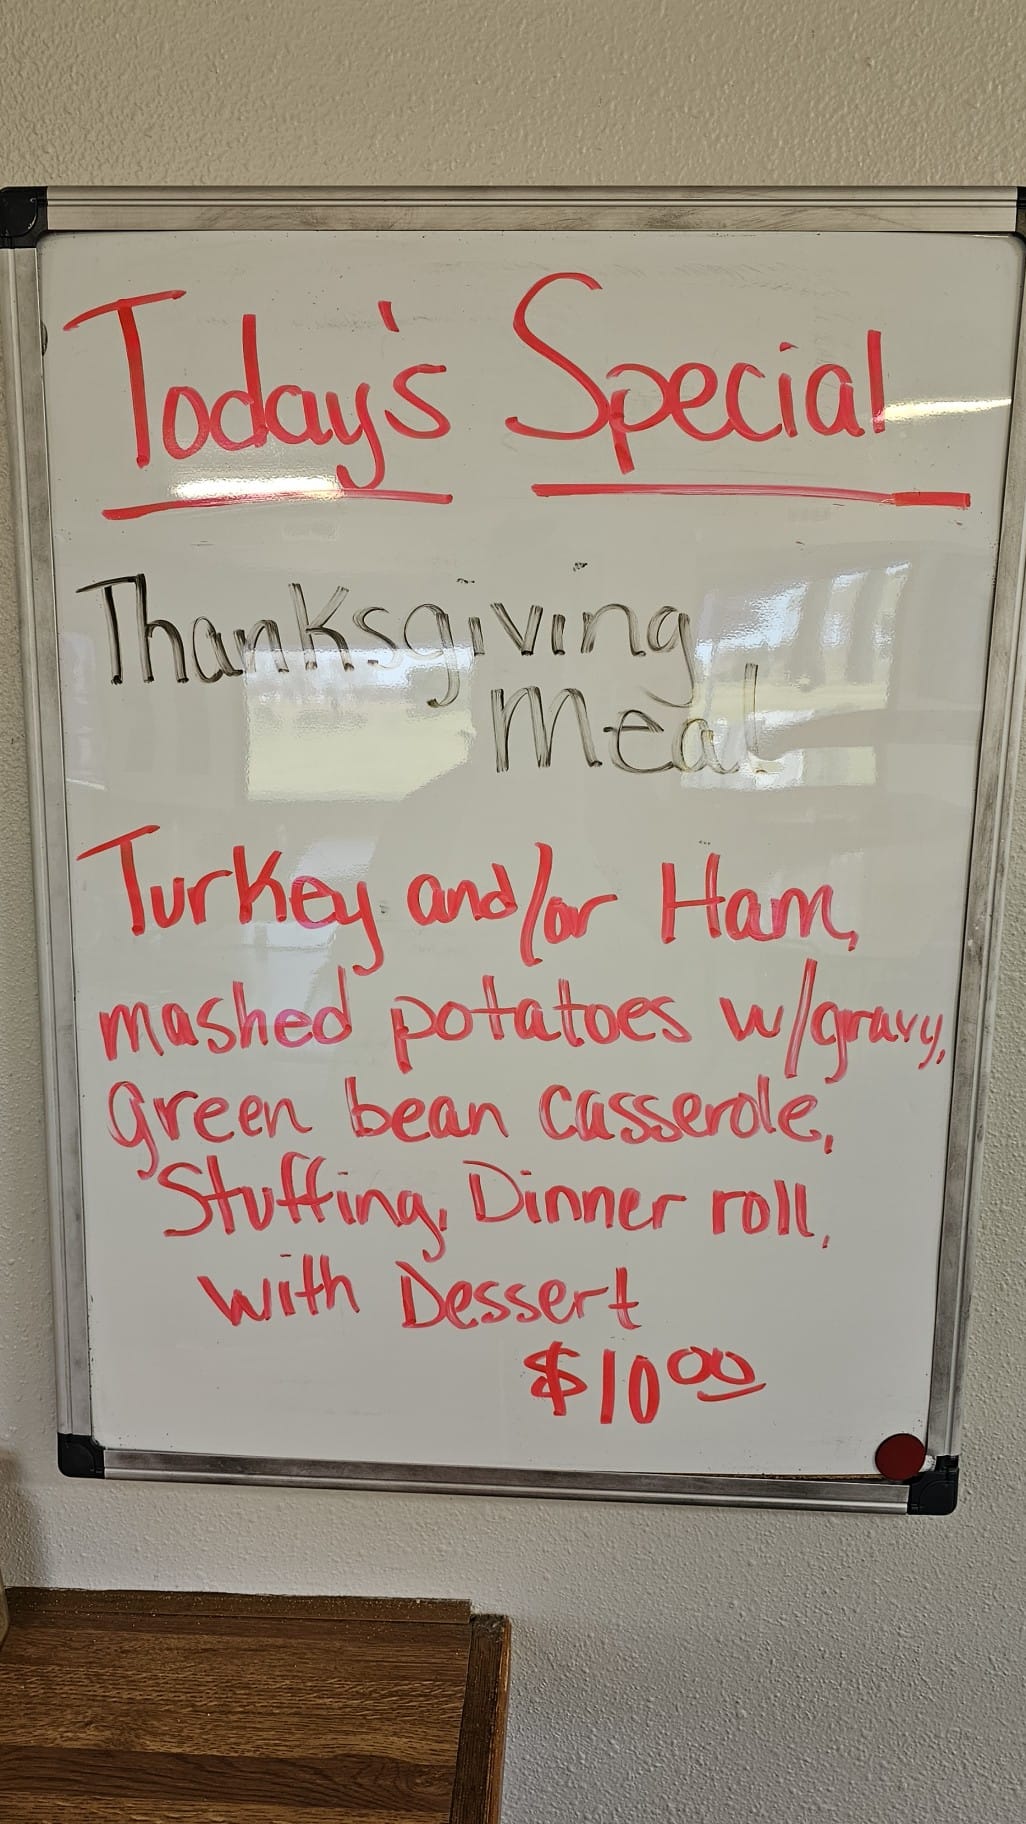 Today's Special
Thanksgiving
Meal
Turkey and/or Ham,
mashed potatoes w/gravy,
green bean casserole,
Stuffing, Dinner roll,
with Dessert
$10.00